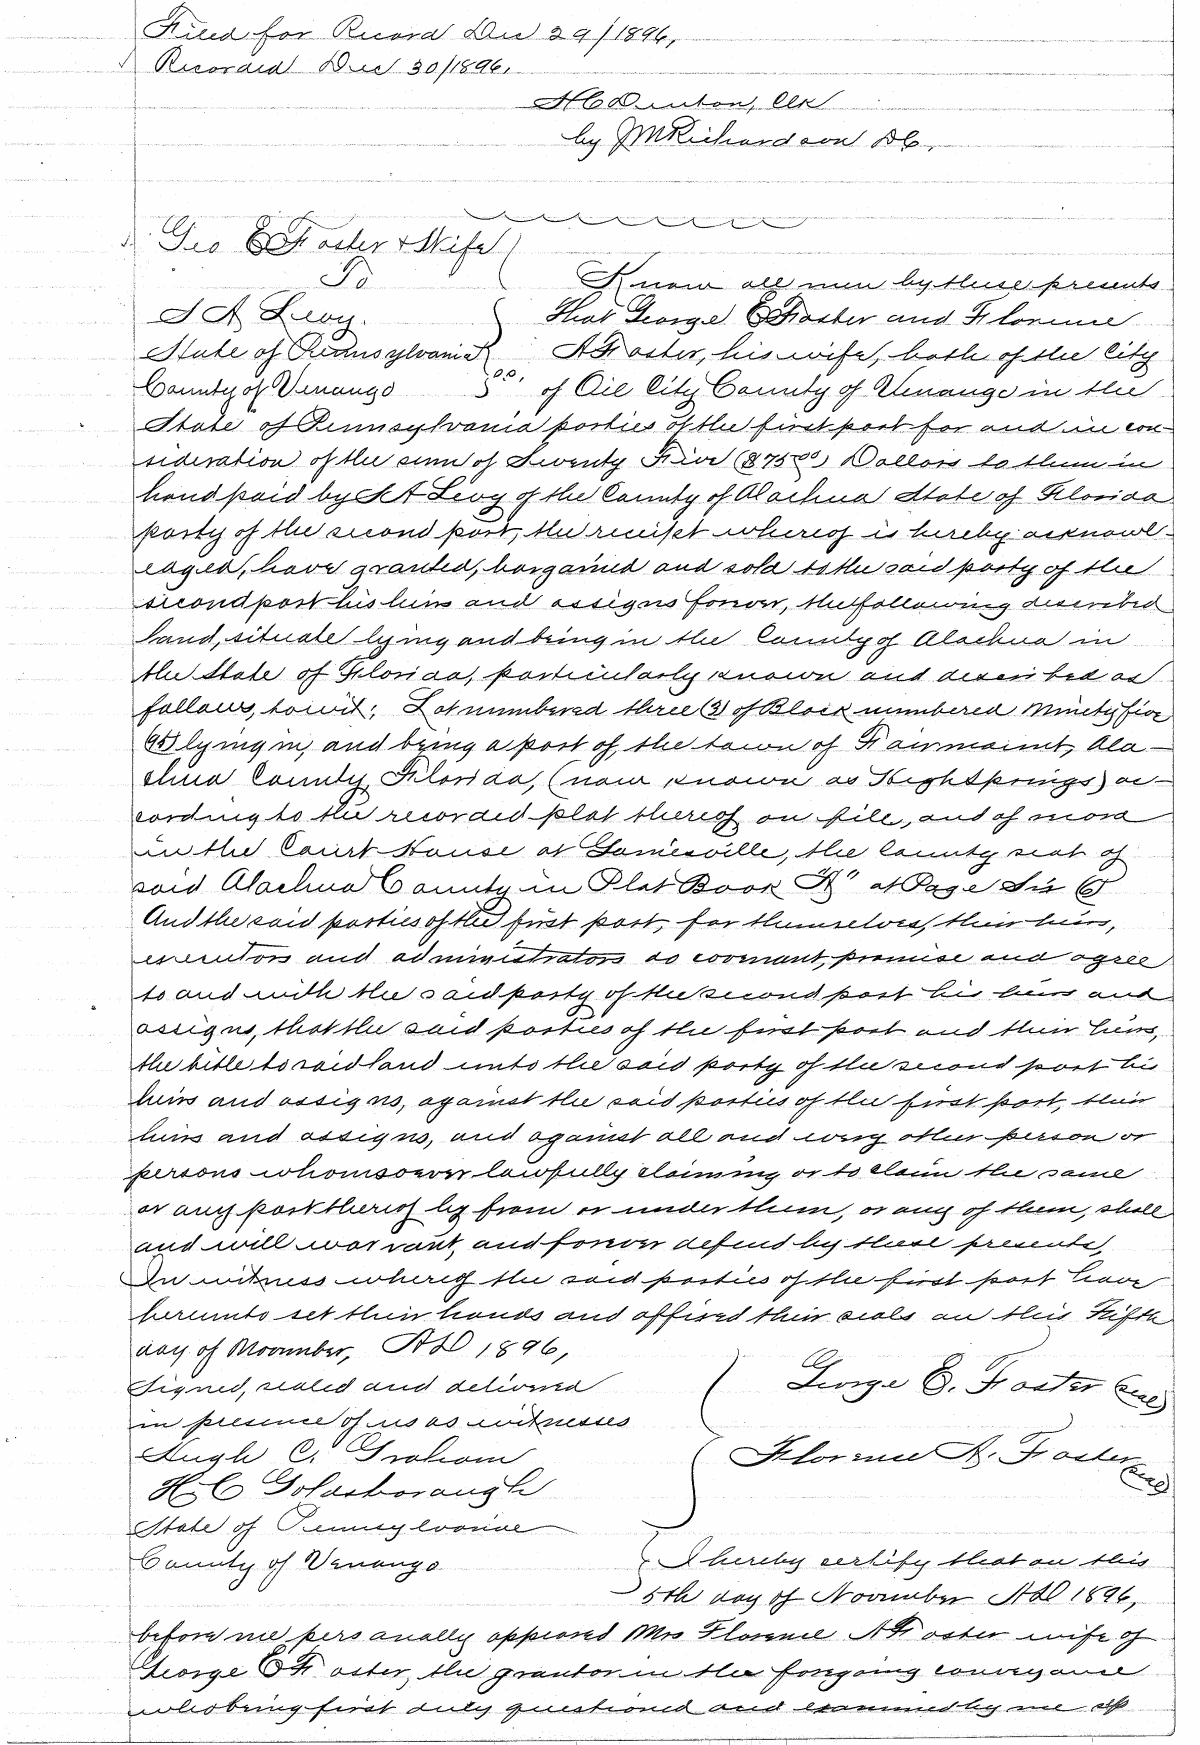 Filed for Record Dec 29/1896,
Recorded Dec 30/1896.
H C Denton, Clk
by J M Richardson D C.
Geo E Foster & Wife
To Know all men by these presents
S A Levy. That George E Foster and Florence
State of Pennsylvania A Foster, his wife, both of the City
County of Venango ss. of Oil City County of Venango in the
State of Pennsylvania parties of the first part for and in con-
sideration of the sum of Seventy Five ($75 00) Dollars to them in
hand paid by S A Levy of the County of Alachua State of Florida
party of the second part, the receipt whereof is hereby acknowl-
edged, have granted, bargained and sold to the said party of the
second part his heirs and assigns forever, the following described
land, situate lying and being in the County of Alachua in
the State of Florida, particularly known and described as
follows, towit: Lot numbered three (3) of Block numbered Ninety five
(95) lying in, and being a part of, the town of Fairmount, Ala-
chua County, Florida, (now known as High Springs) ac-
cording to the recorded plat thereof on file, and of record
in the Court House at Gainesville, the County seat of
said Alachua County in Plat Book "A" at Page Six (6)
And the said parties of the first part, for themselves, their heirs,
executors and administrators do covenant, promise and agree
to and with the said party of the second part his heirs and
assigns, that the said parties of the first part and their heirs,
the title to said land unto the said party of the second part his
heirs and assigns, against the said parties of the first part, their
heirs and assigns, and against all and every other person or
persons whomsoever lawfully claiming or to claim the same
or any part thereof by from or under them, or any of them, shall
and will warrant, and forever defend by these presents,
In witness whereof the said parties of the first part have
hereunto set their hands and affixed their seals on this Fifth
day of November, AD 1896,
Signed, sealed and delivered George E. Foster (seal)
in presence of us as witnesses
Hugh C. Graham Florence A. Foster (seal)
H. C Goldsborough
State of Pennsylvania
County of Venango I hereby certify that on this
5th day of November AD 1896,
before me personally appeared Mrs Florence A Foster wife of
George E Foster, the grantor in the foregoing conveyance
who being first duly questioned and examined by me